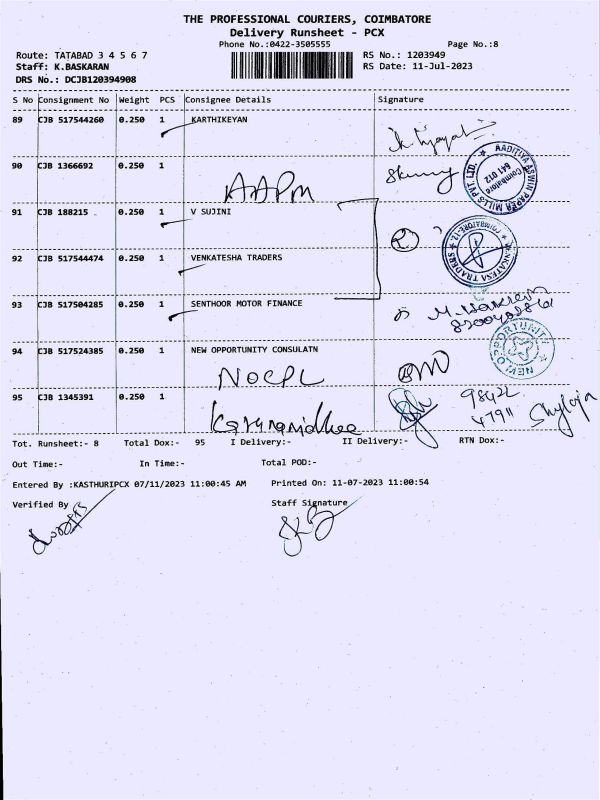 THE PROFESSIONAL COURIERS, COIMBATORE
Delivery Runsheet - PCX
Phone No.:0422-3505555 Page No.:8
Route: TATABAD 3 4 5 6 7 RS No.: 1203949
Staff: K.BASKARAN RS Date: 11-Jul-2023
DRS No.: DCJB120394908
S No Consignment No Weight PCS Consignee Details Signature
89 CJB 517544260 0.250 1 KARTHIKEYAN
90 CJB 1366692 0.250 1
AAPM
AADITIYA ASWIN PAPER MILLS PVT. LTD.
Coimbatore
641 012
91 CJB 188215 0.250 1 V SUJINI
92 CJB 517544474 0.250 1 VENKATESHA TRADERS
VENKATESA TRADERS COIMBATORE-12
93 CJB 517504285 0.250 1 SENTHOOR MOTOR FINANCE
94 CJB 517524385 0.250 1 NEW OPPORTUNITY CONSULATN
NOCPL
NEW OPPORTUNITY
95 CJB 1345391 0.250 1
98422
47911
Shylaja
Tot. Runsheet:- 8 Total Dox:- 95 I Delivery:- II Delivery:- RTN Dox:-
Out Time:- In Time:- Total POD:-
Entered By :KASTHURIPCX 07/11/2023 11:00:45 AM Printed On: 11-07-2023 11:00:54
Verified By Staff Signature